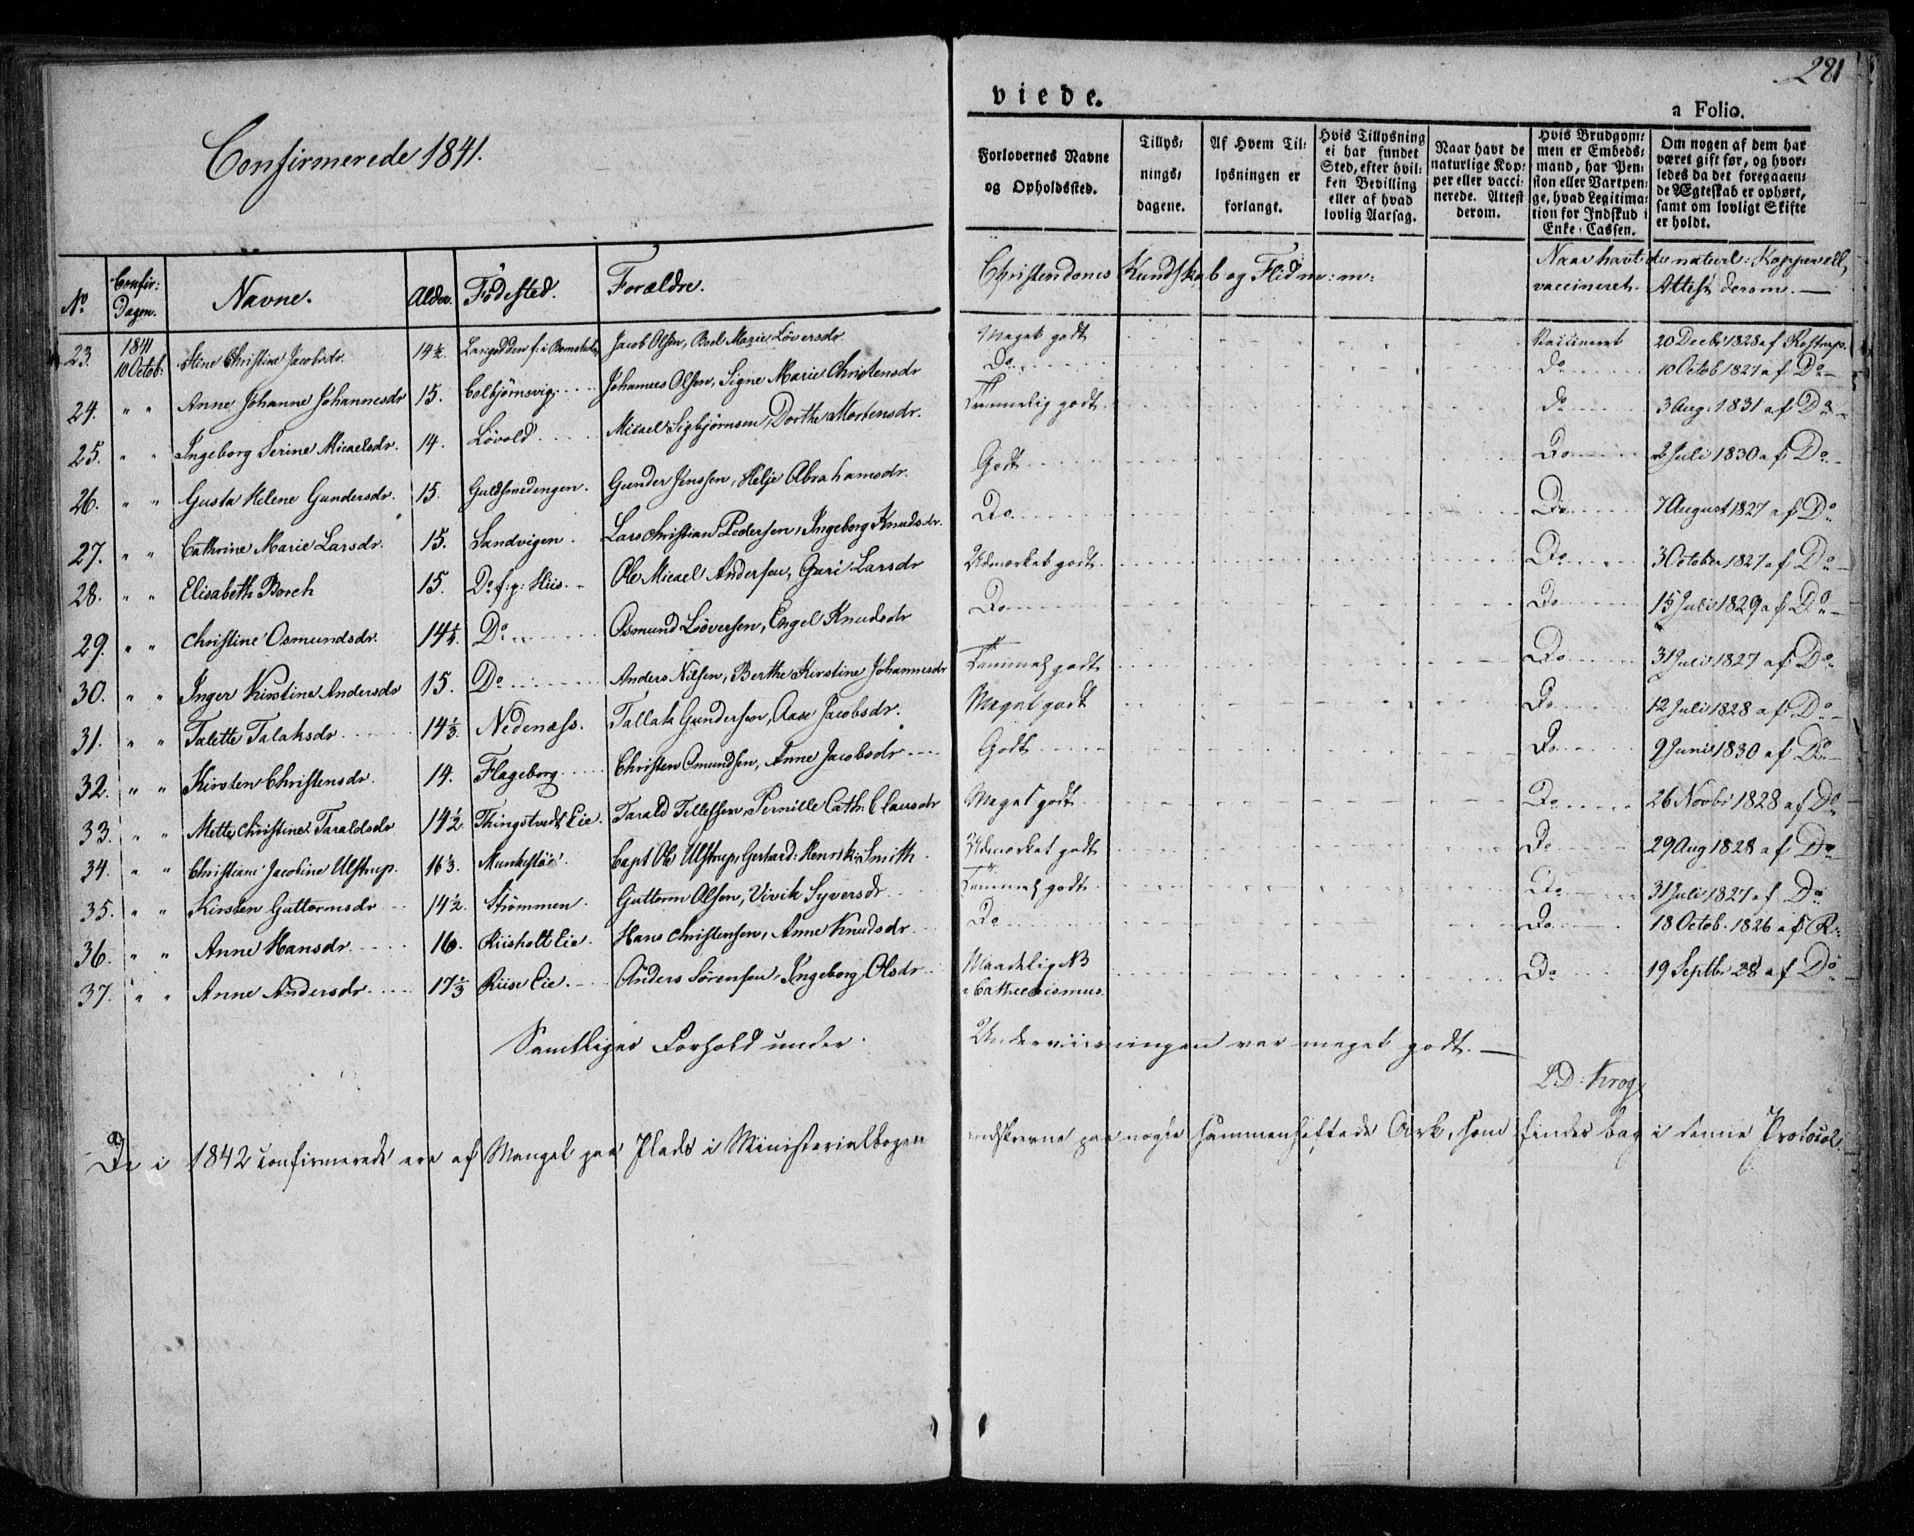 281
viede.
a Folio.
Confirmerede 1841.
Forlovernes Navne og Opholdssted.
Tillys: nings: dagene.
Af Hvem Til: lysningen er forlangt.
Hvis Tillysning ei har fundet Sted, efter hvil: ken Bevilling eller af hvad lovlig Aarsag.
Naar havt de naturlige Kop: per eller vacci: nerede. Attest derom.
Hvis Brudgom: men er Embeds: mand, har Pen: sion eller Vartpen: ge, hvad Legitima: tion for Indskud i Enke-Cassen.
Om nogen af dem har været gift før, og hvor: ledes da det foregaaen: de Ægteskab er ophørt, samt om lovligt Skifte er holdt.
No. Confir: Dagen. Navne. Alder. Fødested. Forældre. Christendoms Kundskab og Flid m: m: Naar havt de naturl: Kopper ell, vaccineret. Attest derom.
23. 1841 10 Octob. Stine Christine Jacobsdr. 14½ Jacob Olsen, Boel Marie Løversdr Meget godt Vaccineret 20 Decbr 1828 af Kostrup.
24. " " Anne Johanne Johannesdr 15. Colbjørnsvig. Johannes Olsen, Signe Marie Christensdr Do. do 10 Octob 1827 af Do
25. " " Ingeborg Serine Micaelsdr. 14. Løvold Micael Sigbjørnsen, Dorthe Mortensdr. Temmelig godt do 3 Aug. 1831 af Do
26. " " Gusta Helene Gundersdr. 15. Guldsmedengen. Gunder Jenssen, Helje Abrahamsdr. Godt Do 2 Juli 1830 af Do
27. " " Cathrine Marie Larsdr. 15. Sandvigen. Lars Christian Pedersen, Ingeborg Knudsdr. Do. Do. 7 August 1827 af Do
28. " " Elisabeth Borch 15. Do f: p: Hiis. Ole Micael Andersen, Guri Larsdr Udmærket godt Do 3 October 1827 af Do
29. " " Christine Osmundsdr. 14½. Do Osmund Løversen, Engel Knudsdr Do Do 15 Juli 1829 af Do
30. " " Inger Kirstine Andersdr 15. Do Anders Nilsen, Berthe Kirstine Johannesdr Temmel godt Do 31 Juli 1827 af Do
31. " " Talette Talaksdr 14⅓. Nedenæss. Tallak Gundersen, Aase Jacobsdr. Meget godt Do 12 Juli 1828 af Do
32. " " Kirsten Christensdr. 14. Flageborg Christen Omundsen, Anne Jacobsdr Godt Do 9 Juni 1830 af Do
33. " " Mette Christine Taraldsdr 14½ Thingstvedt Eie. Tarald Tellefsen, Pernille Cath: Clausdr Meget godt Do 26 Novbr 1828 af Do
34. " " Christiane Jacobine Ulstrup. 16⅓. Capt Ol Ulstrup, Gerhard: Henrikke Smith Udmærket godt Do 29 Aug 1828 af Do
35. " " Kirsten Guttormsdr 14½ Strømmen. Guttorm Olsen, Vivik Syversdr Temmel godt Do 31 Juli 1827 af Do
36. " " Anne Hansdr 16. Riisholt Eie. Hans Christensen, Anne Knudsdr Do Do. 18 Octob. 1826 af R:
37. " " Anne Andersdr 17⅓ Riise Eie. Anders Sørensen, Ingeborg Olsdr Maadelig NB Cathecismus. Do 19 Septbr 28 af Do
Samtliges Forhold under Underviisningen var meget godt.
P.D. Krog
De i 1842 confirmerede ere af Mangel paa Plads i Ministerialbogen indskrevne paa nogle sammenheftede Ark, som findes bag i denne Protocol.